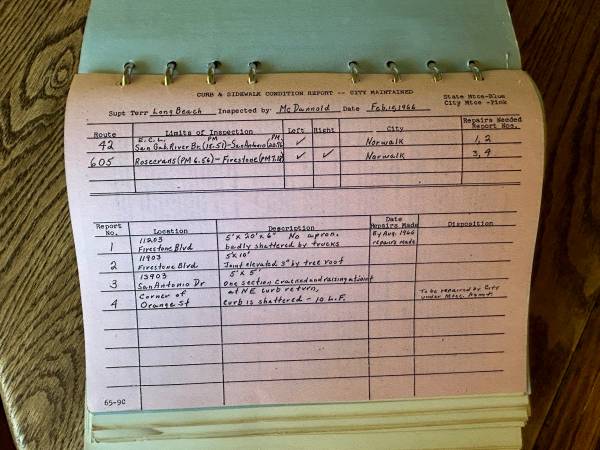 CURB & SIDEWALK CONDITION REPORT -- CITY MAINTAINED
State Mtce-Blue
City Mtce -Pink
Supt Terr Long Beach Inspected by McDannold Date Feb. 15, 1966
Route Limits of Inspection Left Right City Repairs Needed Report Nos.
42 E.C.L. San Gab. River Br. (PM 18.51) - San Antonio (PM
✓ Norwalk 1, 2
605 Rosecrans (PM 6.56) - Firestone (PM 7.18) ✓ ✓ Norwalk 3, 4
Report No. Location Description Date Repairs Made Disposition
1 11203 Firestone Blvd 5' x 20' x 6" No apron. badly shattered by trucks By Aug. 1966 repairs made
2 11903 Firestone Blvd 5' x 10' Joint elevated 3" by tree root
3 13903 San Antonio Dr 5' x 5' One section cracked and raising at joint
4 Corner of Orange St at NE curb return, curb is shattered - 10 L.F. To be repaired by City under Mtce. Agmt.
65-9C